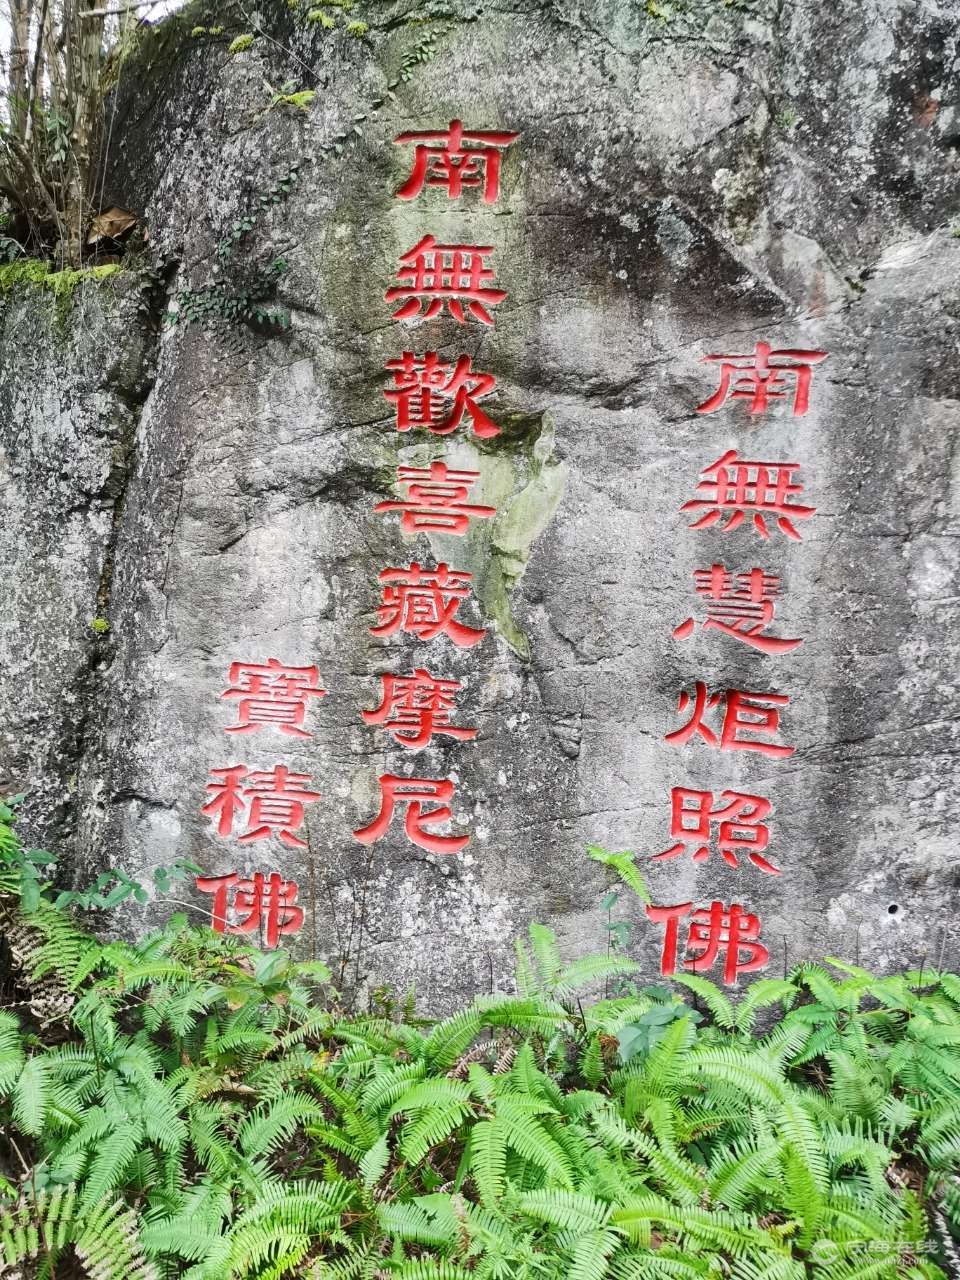 南無慧炬照佛
南無歡喜藏摩尼
寶積佛